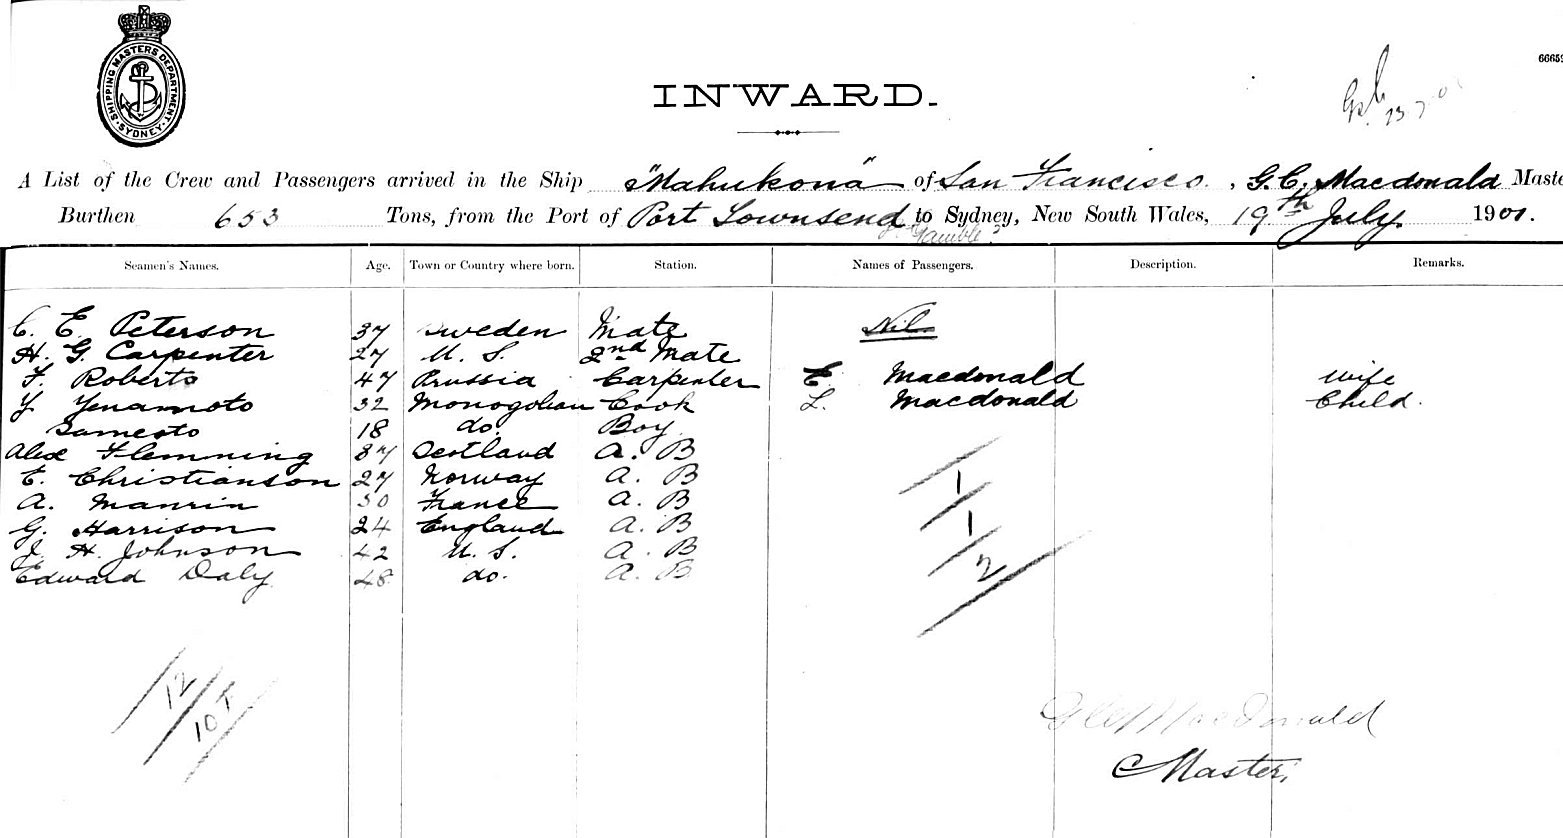 SHIPPING MASTERS DEPARTMENT. SYDNEY.
INWARD.
A List of the Crew and Passengers arrived in the Ship "Mahukona" of San Francisco, G.C. Macdonald Maste
Burthen 653 Tons, from the Port of Port Townsend to Sydney, New South Wales, 19th July 1901.
Gamble?
Seamen's Names. Age. Town or Country where born. Station. Names of Passengers. Description. Remarks.
C. E. Peterson 37 Sweden Mate Nil
H. G. Carpenter 27 U. S. 2nd Mate
F. Roberts 47 Prussia Carpenter E. Macdonald wife
Y Yenamoto 32 Monogolian Cook L. Macdonald Child.
Samesto 18 do. Boy
Alex Flemming 37 Scotland A. B
E. Christianson 27 Norway A. B
A. Manrin 30 France A. B
G. Harrison 24 England A. B
J. H. Johnson 42 U. S. A. B
Edward Daly 48 do. A. B
1
1
2
12
10 T
G C MacDonald
Master,